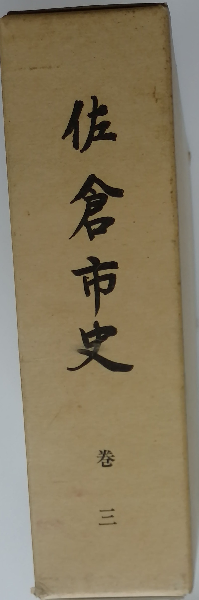 佐倉市史
巻三